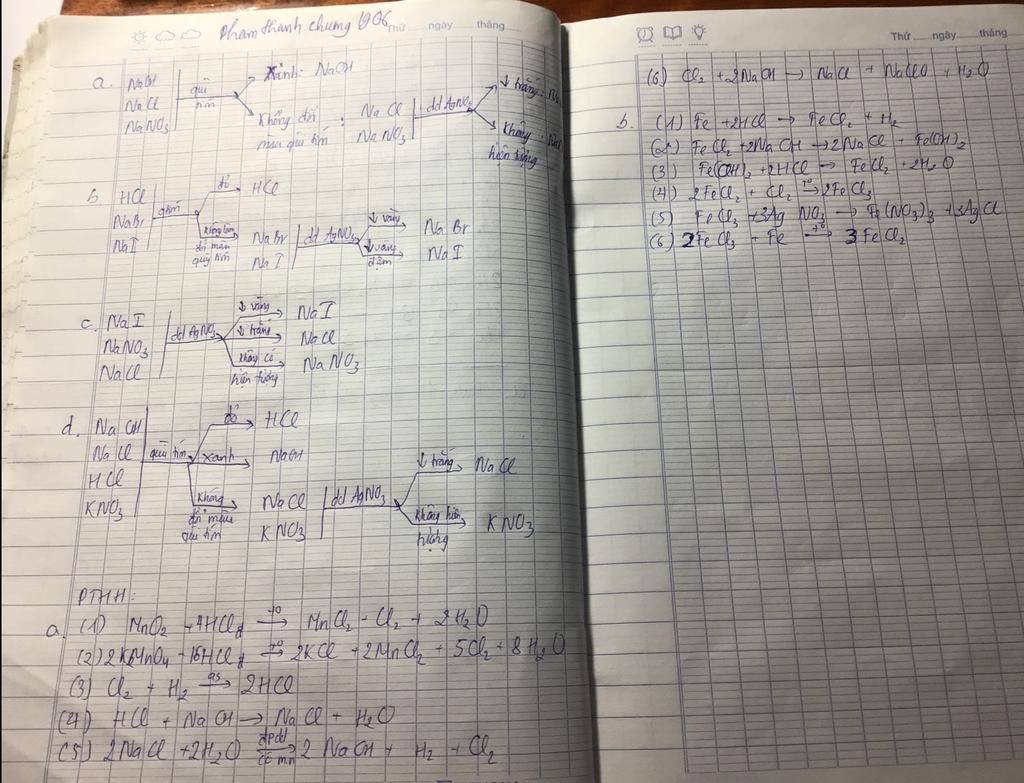 Phạm thành chương 10A6
Thứ ... ngày ... tháng ...
a. NaOH
NaCl
NaNO3
quì tím
xanh: NaOH
không đổi màu quì tím :
NaCl
NaNO3
dd AgNO3
↓ trắng:
không hiện tượng:
b. HCl
NaBr
NaI
qtím
đỏ
HCl
không làm đổi màu quỳ tím
NaBr
NaI
dd AgNO3
↓ vàng
NaBr
↓ vàng đậm
NaI
c. NaI
NaNO3
NaCl
dd AgNO3
↓ vàng
NaI
↓ trắng
NaCl
không có hiện tượng
NaNO3
d. NaOH
NaCl
HCl
KNO3
quì tím
đỏ
HCl
xanh
NaOH
không đổi màu quì tím
NaCl
KNO3
dd AgNO3
↓ trắng
NaCl
không hiện tượng
KNO3
PTHH:
a. (1) MnO2 + 4HClđ →(t°) MnCl2 + Cl2 + 2H2O
(2) 2KMnO4 + 16HClđ →(t°) 2KCl + 2MnCl2 + 5Cl2 + 8H2O
(3) Cl2 + H2 →(as) 2HCl
(4) HCl + NaOH → NaCl + H2O
(5) 2NaCl + 2H2O →(đpdd có mn) 2NaOH + H2 + Cl2
Thứ ... ngày ... tháng
(6) Cl2 + 2NaOH → NaCl + NaClO + H2O
b. (1) Fe + 2HCl → FeCl2 + H2
(2) FeCl2 + 2NaOH → 2NaCl + Fe(OH)2
(3) Fe(OH)2 + 2HCl → FeCl2 + 2H2O
(4) 2FeCl2 + Cl2 →(t°) 2FeCl3
(5) FeCl3 + 3AgNO3 → Fe(NO3)3 + 3AgCl
(6) 2FeCl3 + Fe →(t°) 3FeCl2